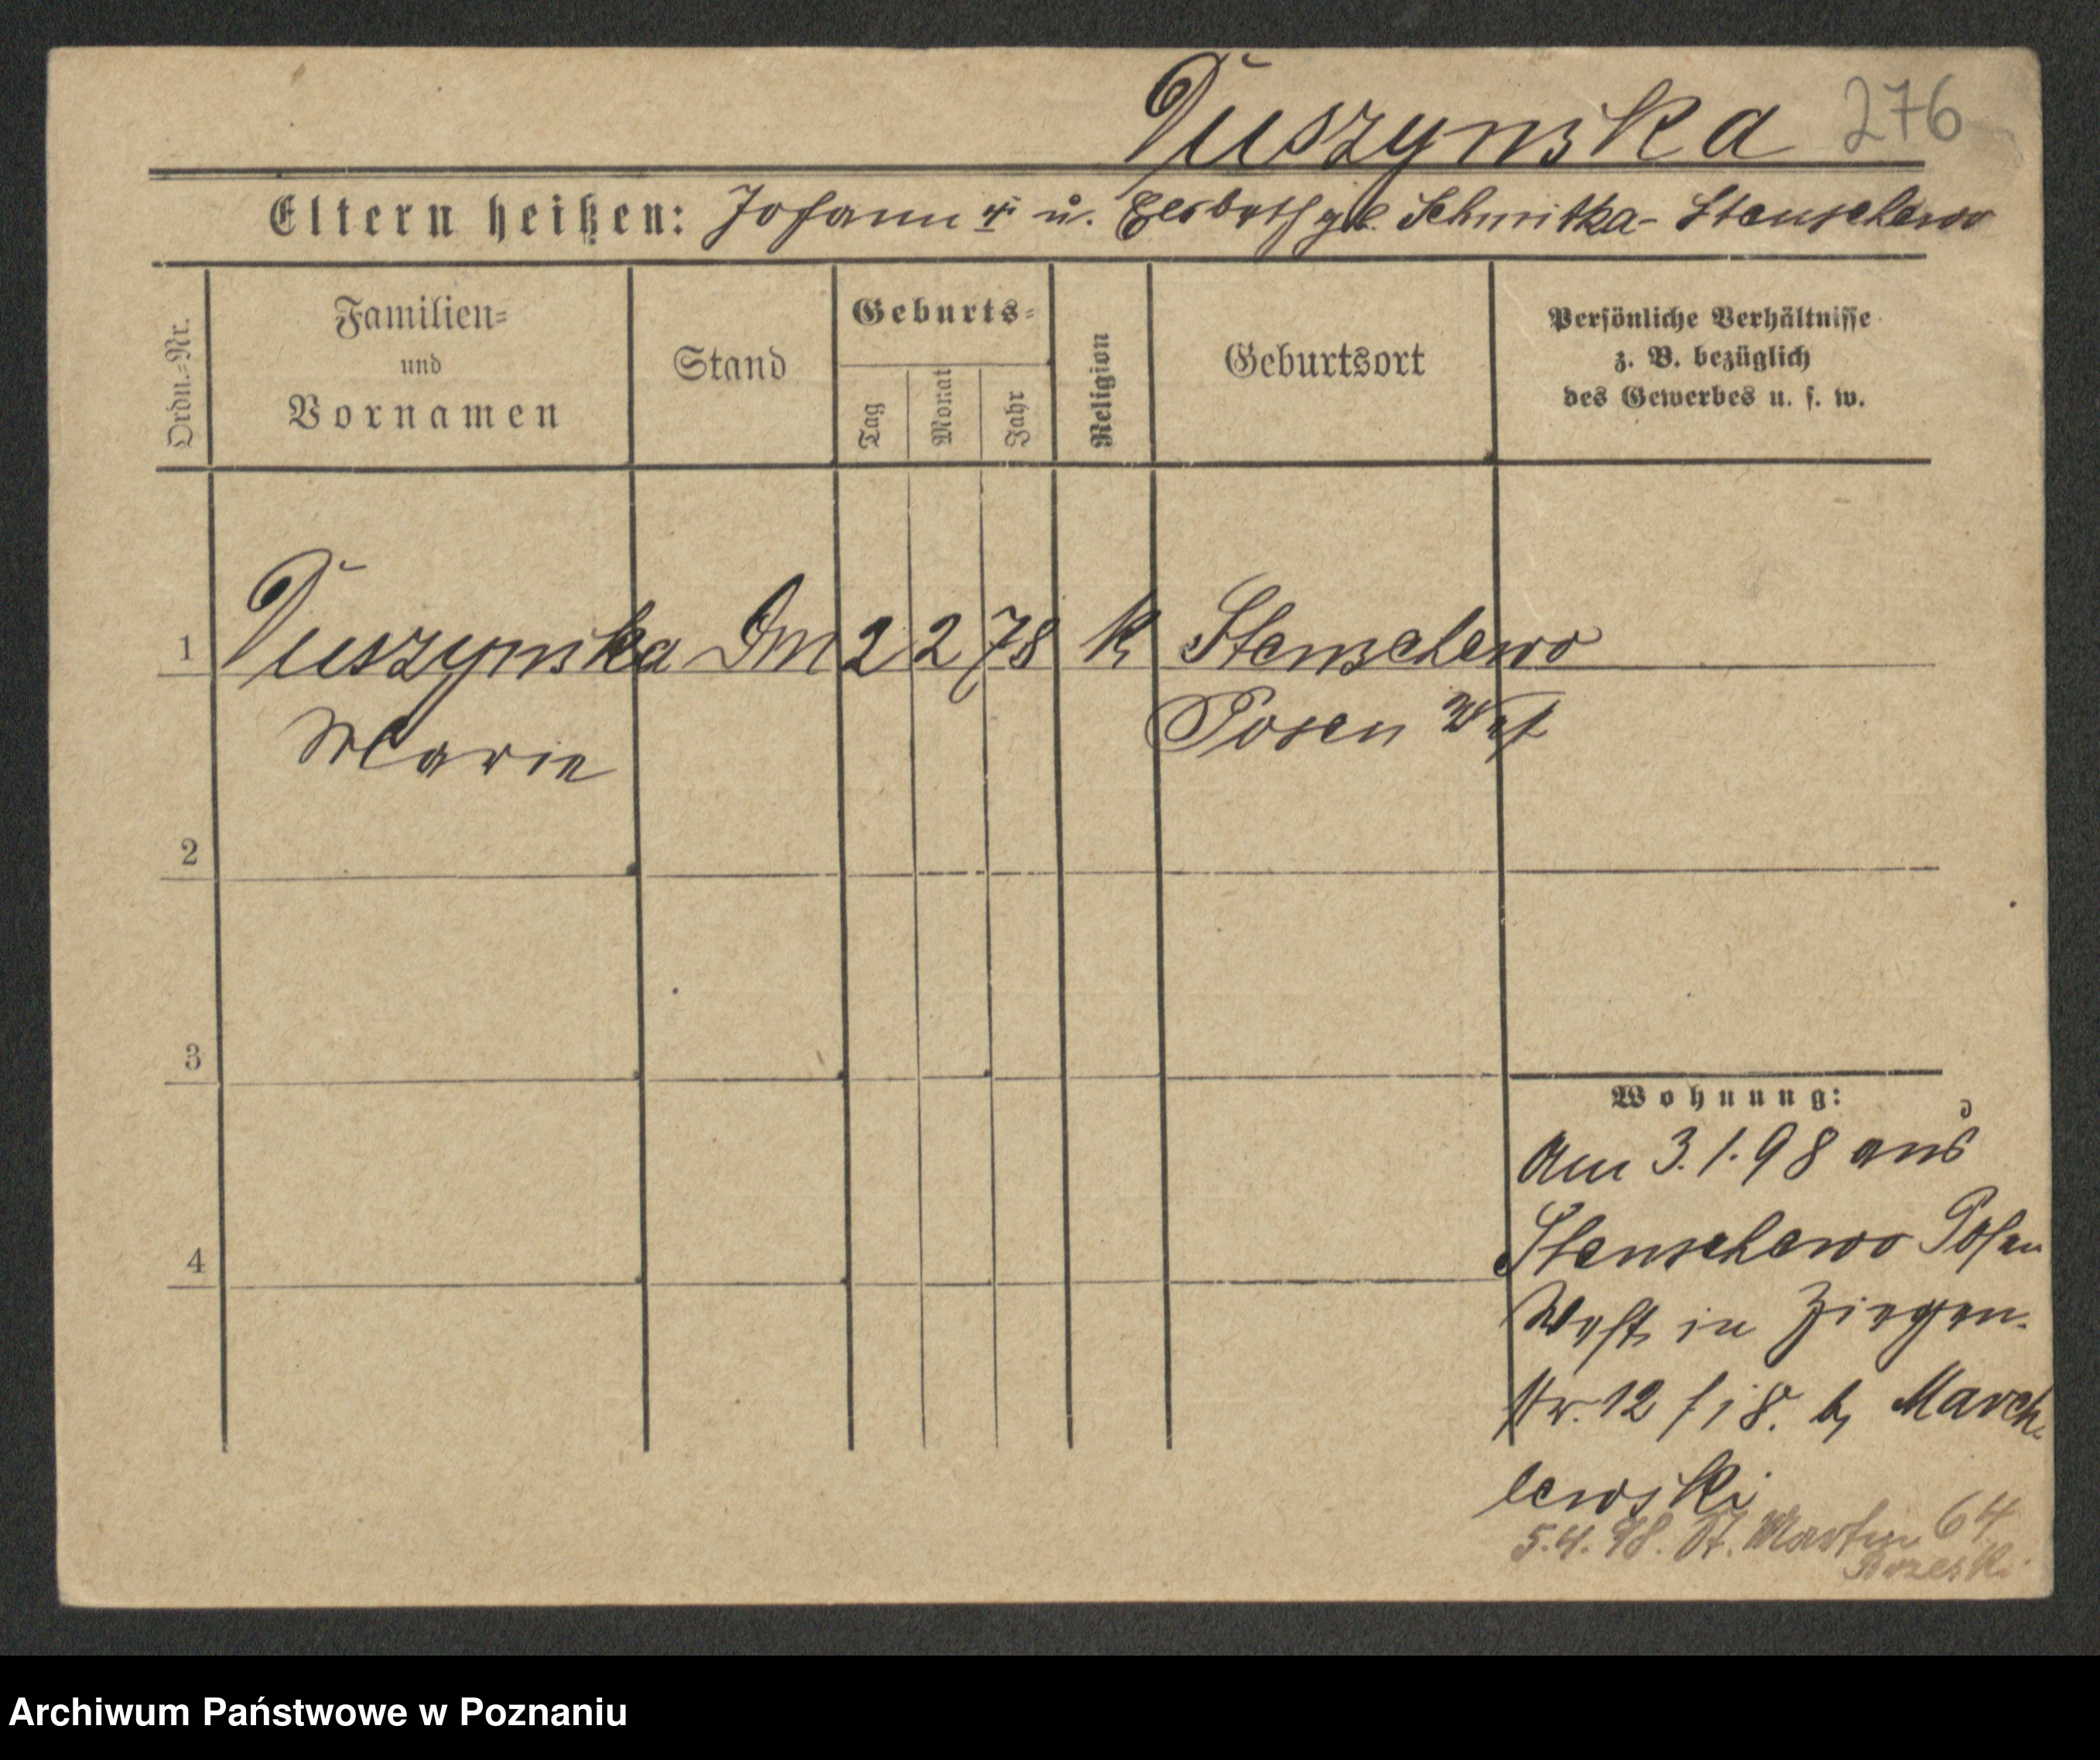 Duszynska 276
Eltern heißen: Johann † u. Elsbeth geb. Schmitka - Stenschewo
Ordn.=Nr.
Familien=
und
Vornamen
Stand
Geburts=
Tag
Monat
Jahr
Religion
Geburtsort
Persönliche Verhältnisse
z. B. bezüglich
des Gewerbes u. s. w.
1 Duszynska Dm 2 2 78 k Stenschewo
Marie Posen West
2
3
4
Wohnung:
Am 3.1.98 aus
Stenschewo Posen
West in Ziegen-
str. 12 b. March-
lewski
5.4.98. St. Martin 64
Archiwum Państwowe w Poznaniu